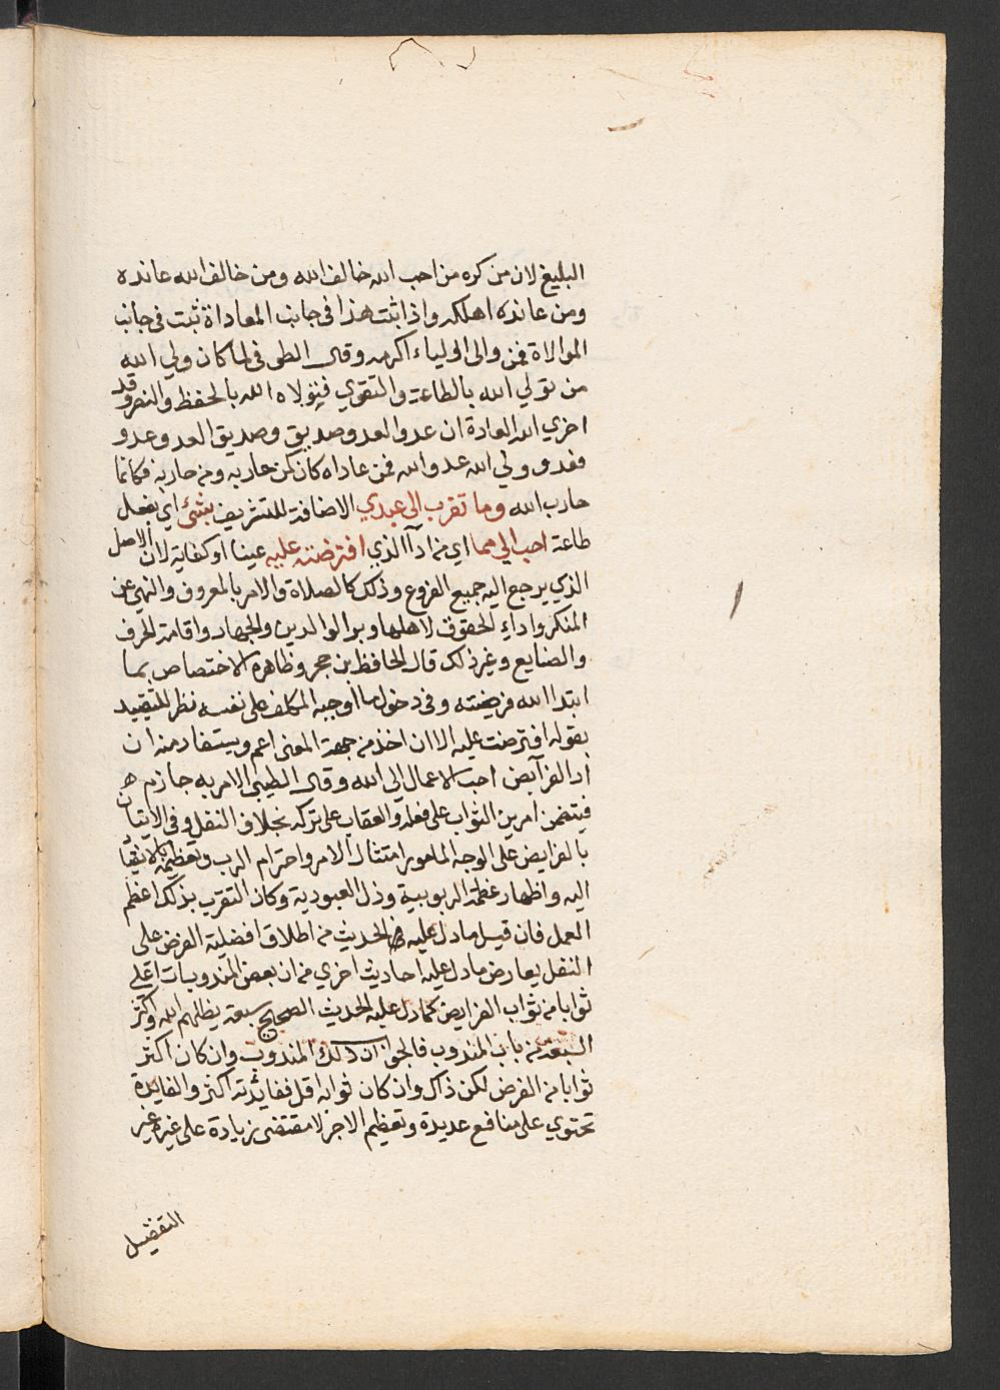 البليغ لان من كره من احب الله خالف الله ومن خالف الله عانده
ومن عانده اهلكه واذا ثبت هذا في جانب المعاداة ثبت في جانب
الموالاة فمن والى اولياء اكرمه وقال الطوفي لما كان ولي الله
من تولي الله بالطاعة والتقوي فتولاه الله بالحفظ والنصر وقد
اجري الله العادة ان عدو العدو صديق وصديق العدو عدو
فعدو ولي الله عدو الله فمن عاداه كان كمن حاربه ومن حاربه فكانما
حارب الله وما تقرب الى عبدي الاضافة للتشريف بشئ اي بفعل
طاعة احب الي مما اي من اداآ الذي افترضته عليه عينا او كفاية لان الاصل
الذي يرجع اليه جميع الفروع وذلك كالصلاة والامر بالمعروف والنهي عن
المنكر واداء الحقوق لاهلها وبر الوالدين والجهاد واقامة الحرف
والصنايع وغير ذلك قال الحافظ بن حجر وظاهره الاختصاص بما
ابتدا الله فريضته وفي دخول ما اوجبه المكلف على نفسه نظر للتقييد
بقوله افترضت عليه الا ان اخذ من جهة المعنى اعم ويستفاد منه ان
ادا الفرآيض احب الاعمال الى الله وقال الطيبي الامر به جازم
فيتضمن امرين الثواب على فعله والعقاب على تركه بخلاف النفل وفي الاتيان
بالفرايض على الوجه المامور امتثال الامر واحترام الرب وتعظيمه بالانقياد
اليه واظهار عظمة الربوبية وذل العبودية وكان التقرب بذلك اعظم
العمل فان قيل ما دل عليه الحديث من اطلاق افضلية الفرض على
النفل يعارض ما دل عليه احاديث اخري من ان بعض المندوبات اعلي
ثوابا من ثواب الفرايض كما دل عليه الحديث الصحيح سبعة يظلهم الله واكثر
السبعة من باب المندوب فالجواب ان ذلك المندوب وان كان اكثر
ثوابا من الفرض لكن ذاك وان كان ثوابه اقل ففايدته اكثر والفايدة
تحتوي على منافع عديدة وتعظيم الاجر لا مقتضى زيادة على غيره غير
التفضيل